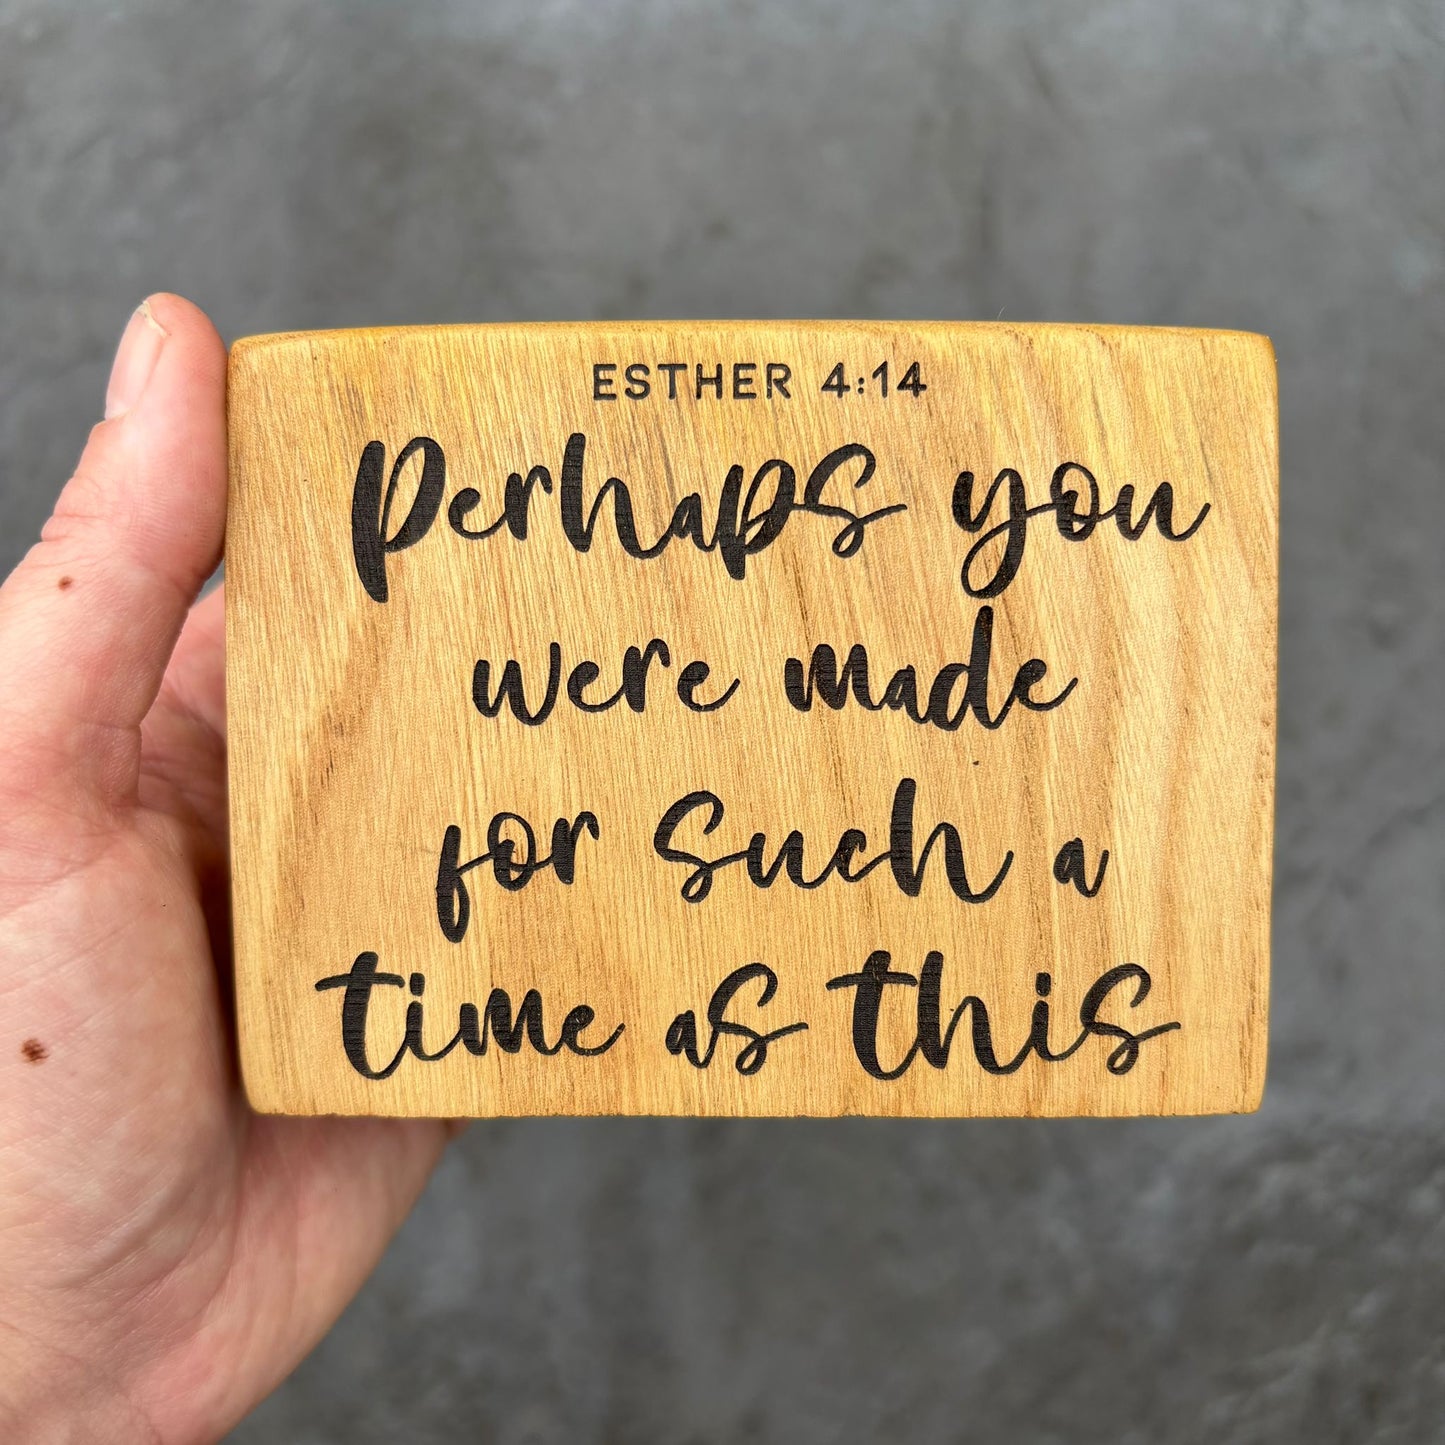 ESTHER 4:14
Perhaps you
were made
for such a
time as this